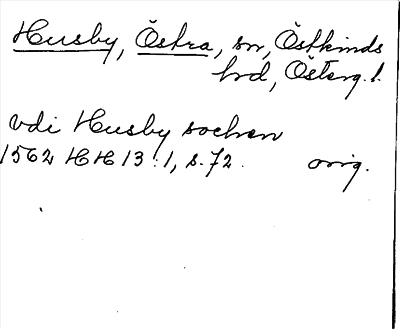 Husby, Östra, sn, Östkinds
hd, Österg.l.
vdi Husby sochen
1562 HH 13:1, s. 72. orig.